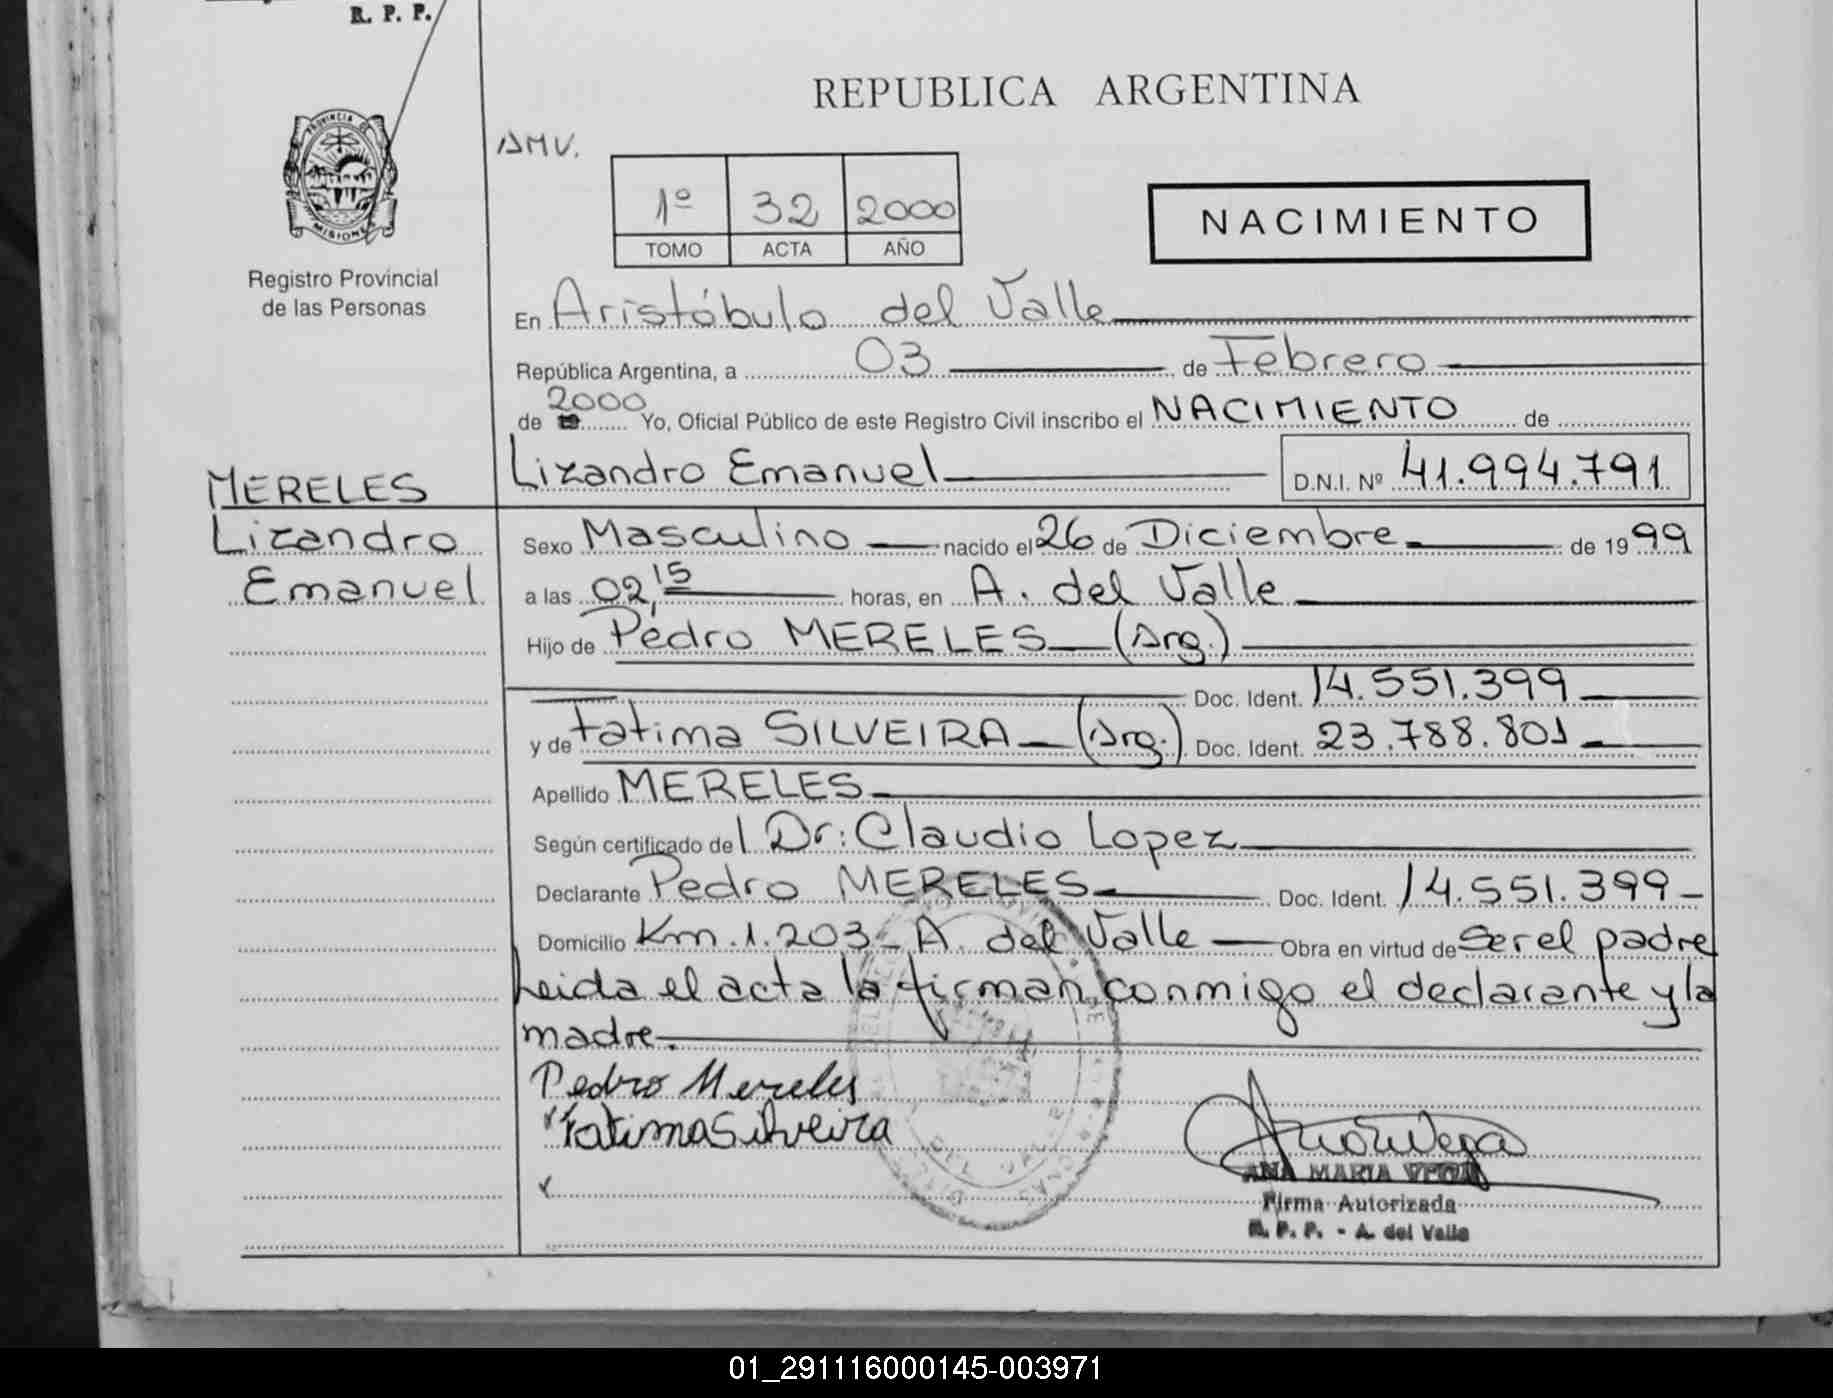 R. P. P.
REPUBLICA ARGENTINA
PROVINCIA DE
MISIONES
Registro Provincial
de las Personas
AMV.
1º 32 2000
TOMO ACTA AÑO
NACIMIENTO
En Aristóbulo del Valle
República Argentina, a 03 de Febrero
de 2000 Yo, Oficial Público de este Registro Civil inscribo el NACIMIENTO de
Lizandro Emanuel D.N.I. Nº 41.994.791
MERELES
Lizandro
Emanuel
Sexo Masculino nacido el 26 de Diciembre de 1999
a las 02,15 horas, en A. del Valle
Hijo de Pedro MERELES (Arg.)
Doc. Ident. 14.551.399
y de Fatima SILVEIRA (Arg.) Doc. Ident. 23.788.801
Apellido MERELES
Según certificado del Dr: Claudio Lopez
Declarante Pedro MERELES Doc. Ident. 14.551.399
Domicilio Km. 1.203 - A. del Valle Obra en virtud de Ser el padre
Leida el acta la firman, conmigo el declarante y la
madre.
Pedro Mereles
Fatima Silveira
ANA MARIA VEGA
Firma Autorizada
R. P. P. - A. del Valle
01_291116000145-003971